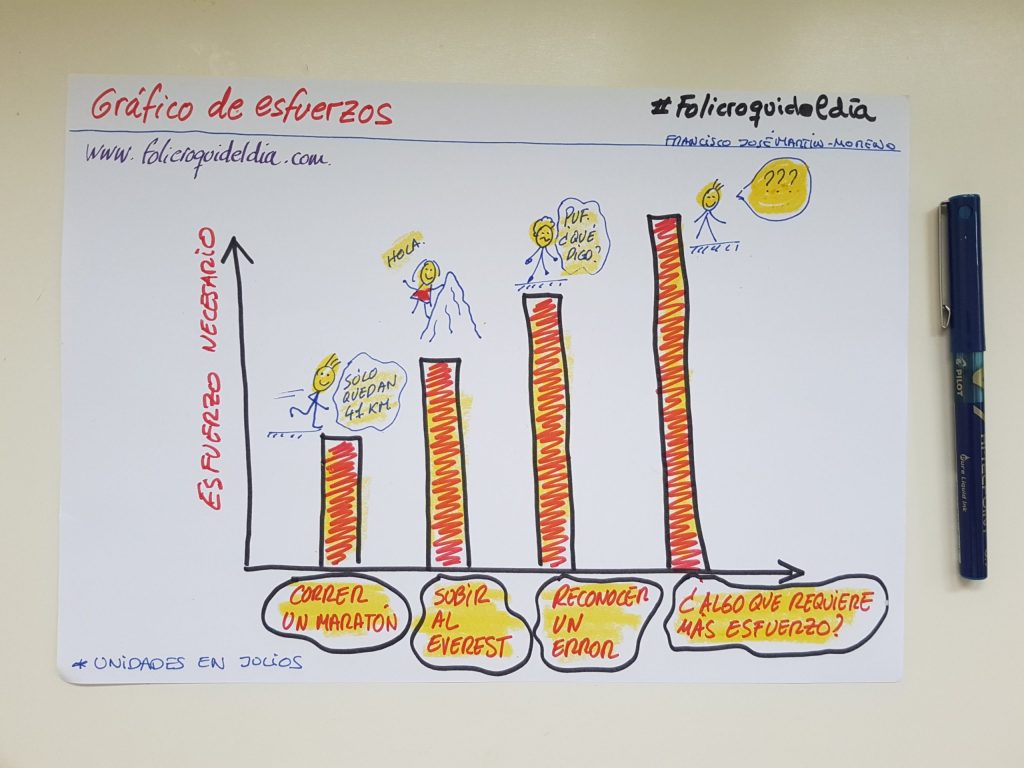 Gráfico de esfuerzos
#Folicroquideldía
FRANCISCO JOSÉ MARTÍN-MORENO
www.folicroquideldia.com.
ESFUERZO NECESARIO
SÓLO
QUEDAN
41 KM
HOLA.
PUF.
¿QUÉ
DIGO?
???
CORRER
UN MARATÓN
SUBIR
AL
EVEREST
RECONOCER
UN
ERROR
¿ALGO QUE REQUIERE
MÁS ESFUERZO?
* UNIDADES EN JULIOS
PILOT
Pure Liquid Ink